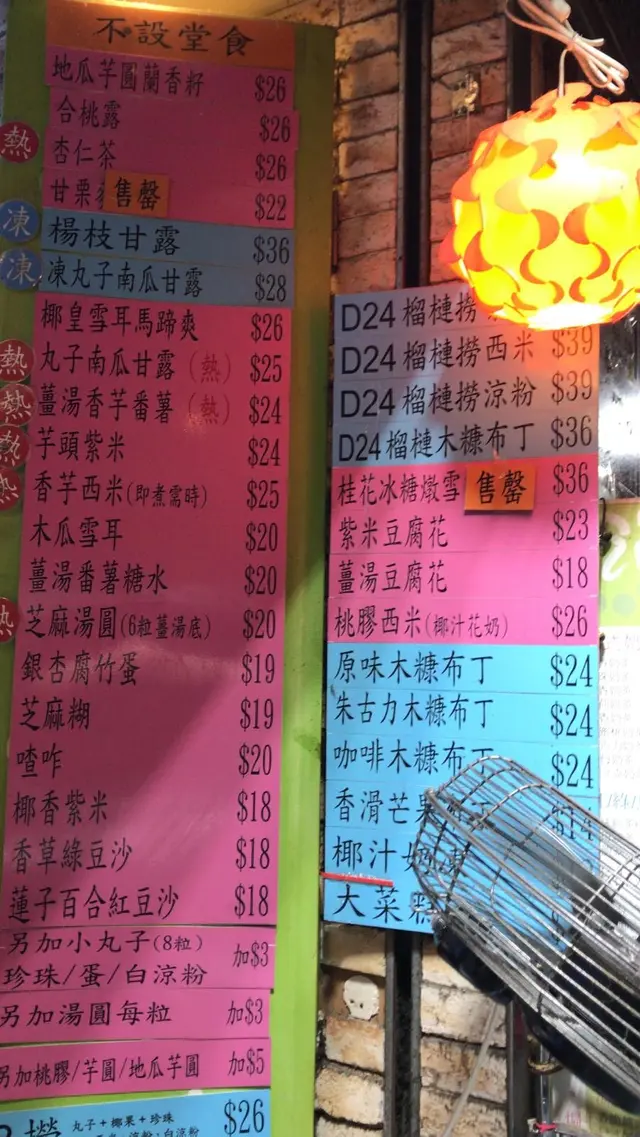 不設堂食
地瓜芋圓蘭香籽 $26
合桃露 $26
熱
杏仁茶 $26
甘栗 售罄 $22
凍 楊枝甘露 $36
凍 凍丸子南瓜甘露 $28
椰皇雪耳馬蹄爽 $26
熱 丸子南瓜甘露(熱) $25
熱 薑湯香芋番薯(熱) $24
熱 芋頭紫米 $24
熱 香芋西米(即煮需時) $25
木瓜雪耳 $20
薑湯番薯糖水 $20
熱 芝麻湯圓(6粒薑湯底) $20
銀杏腐竹蛋 $19
芝麻糊 $19
喳咋 $20
椰香紫米 $18
香草綠豆沙 $18
蓮子百合紅豆沙 $18
另加小丸子(8粒)
珍珠/蛋/白涼粉 加$3
另加湯圓每粒 加$3
另加桃膠/芋圓/地瓜芋圓 加$5
撈 丸子+椰果+珍珠 $26
涼粉·白涼粉
D24榴槤撈
D24榴槤撈西米 $39
D24榴槤撈涼粉 $39
D24榴槤木糠布丁 $36
桂花冰糖燉雪 售罄 $36
紫米豆腐花 $23
薑湯豆腐花 $18
桃膠西米(椰汁花奶) $26
原味木糠布丁 $24
朱古力木糠布丁 $24
咖啡木糠布丁 $24
香滑芒果 $14
椰汁 凍
大菜糕